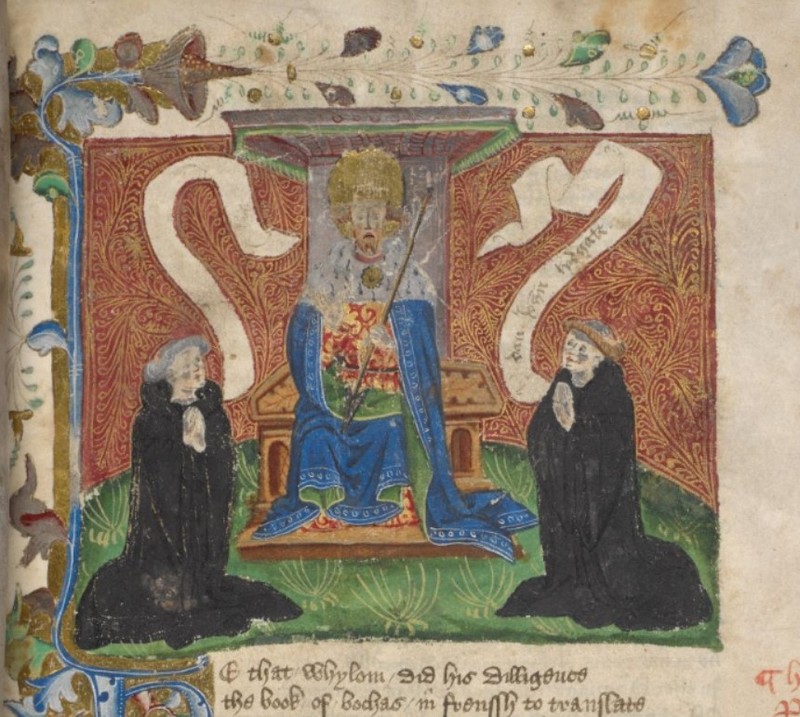 dan Iohn lidgate
E that whylom / did his Dilligence
the book of bochas / in frenssh to translate
¶ h